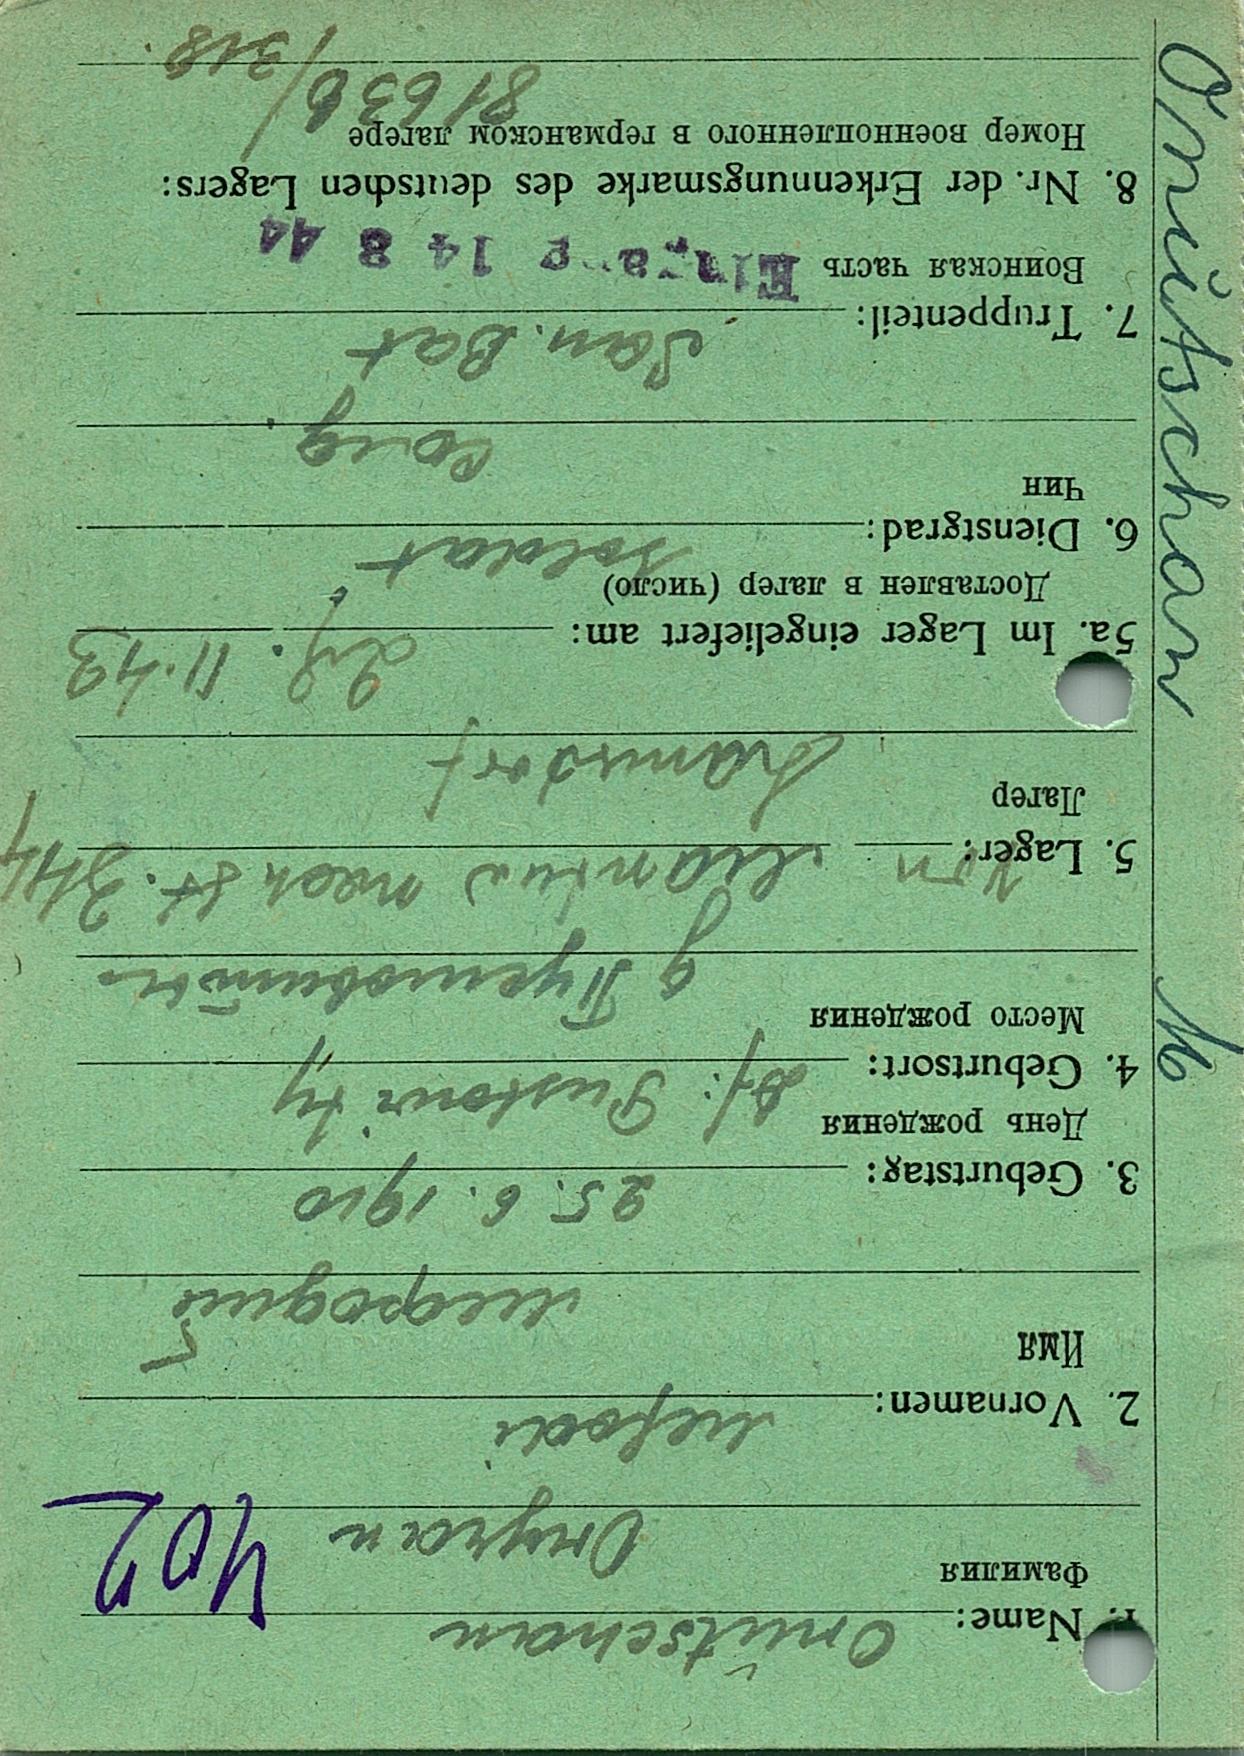 Onŭtschan M
1. Name: Onŭtschan
Фамилия Онучан 402
2. Vornamen: Mefodi
Имя
Мефодий
3. Geburtstag: 25. 6. 1910
День рождения
4. Geburtsort: Df. Pustowity
Место рождения
д Пустовиты
5. Lager: von nach St. 344
Лагер
Lamsdorf
5a. Im Lager eingeliefert am: 29. 11. 43
Доставлен в лагер (число)
6. Dienstgrad: Soldat
Чин
Солд.
7. Truppenteil: San. Bat
Воинская часть 14 8 44
8. Nr. der Erkennungsmarke des deutschen Lagers:
Номер военнопленного в германском лагере
81636/318.